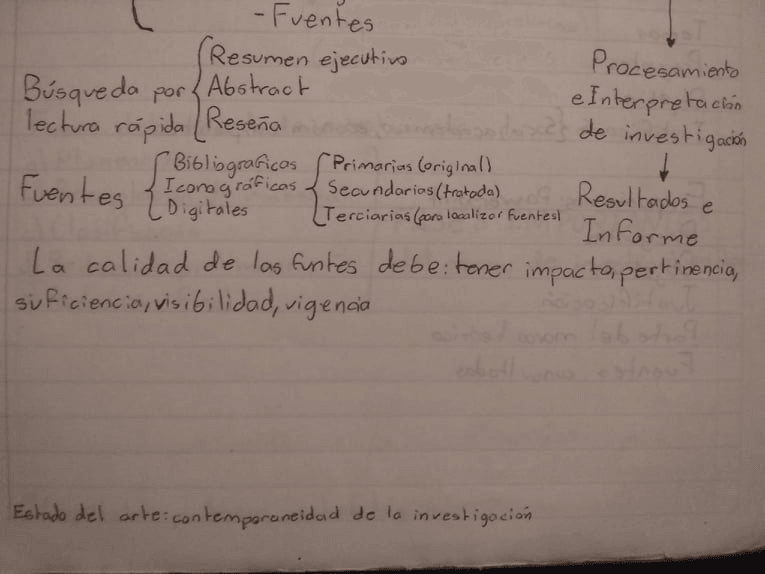 -Fuentes
Búsqueda por
lectura rápida
Resumen ejecutivo
Abstract
Reseña
Procesamiento
e Interpretación
de investigación
Fuentes
Bibliograficas
Iconográficas
Digitales
Primarias (original)
Secundarios (tratada)
Terciarias (para localizar fuentes)
Resultados e
Informe
La calidad de las funtes debe: tener impacto, pertinencia,
suficiencia, visibilidad, vigencia
Estado del arte: contemporaneidad de la investigación